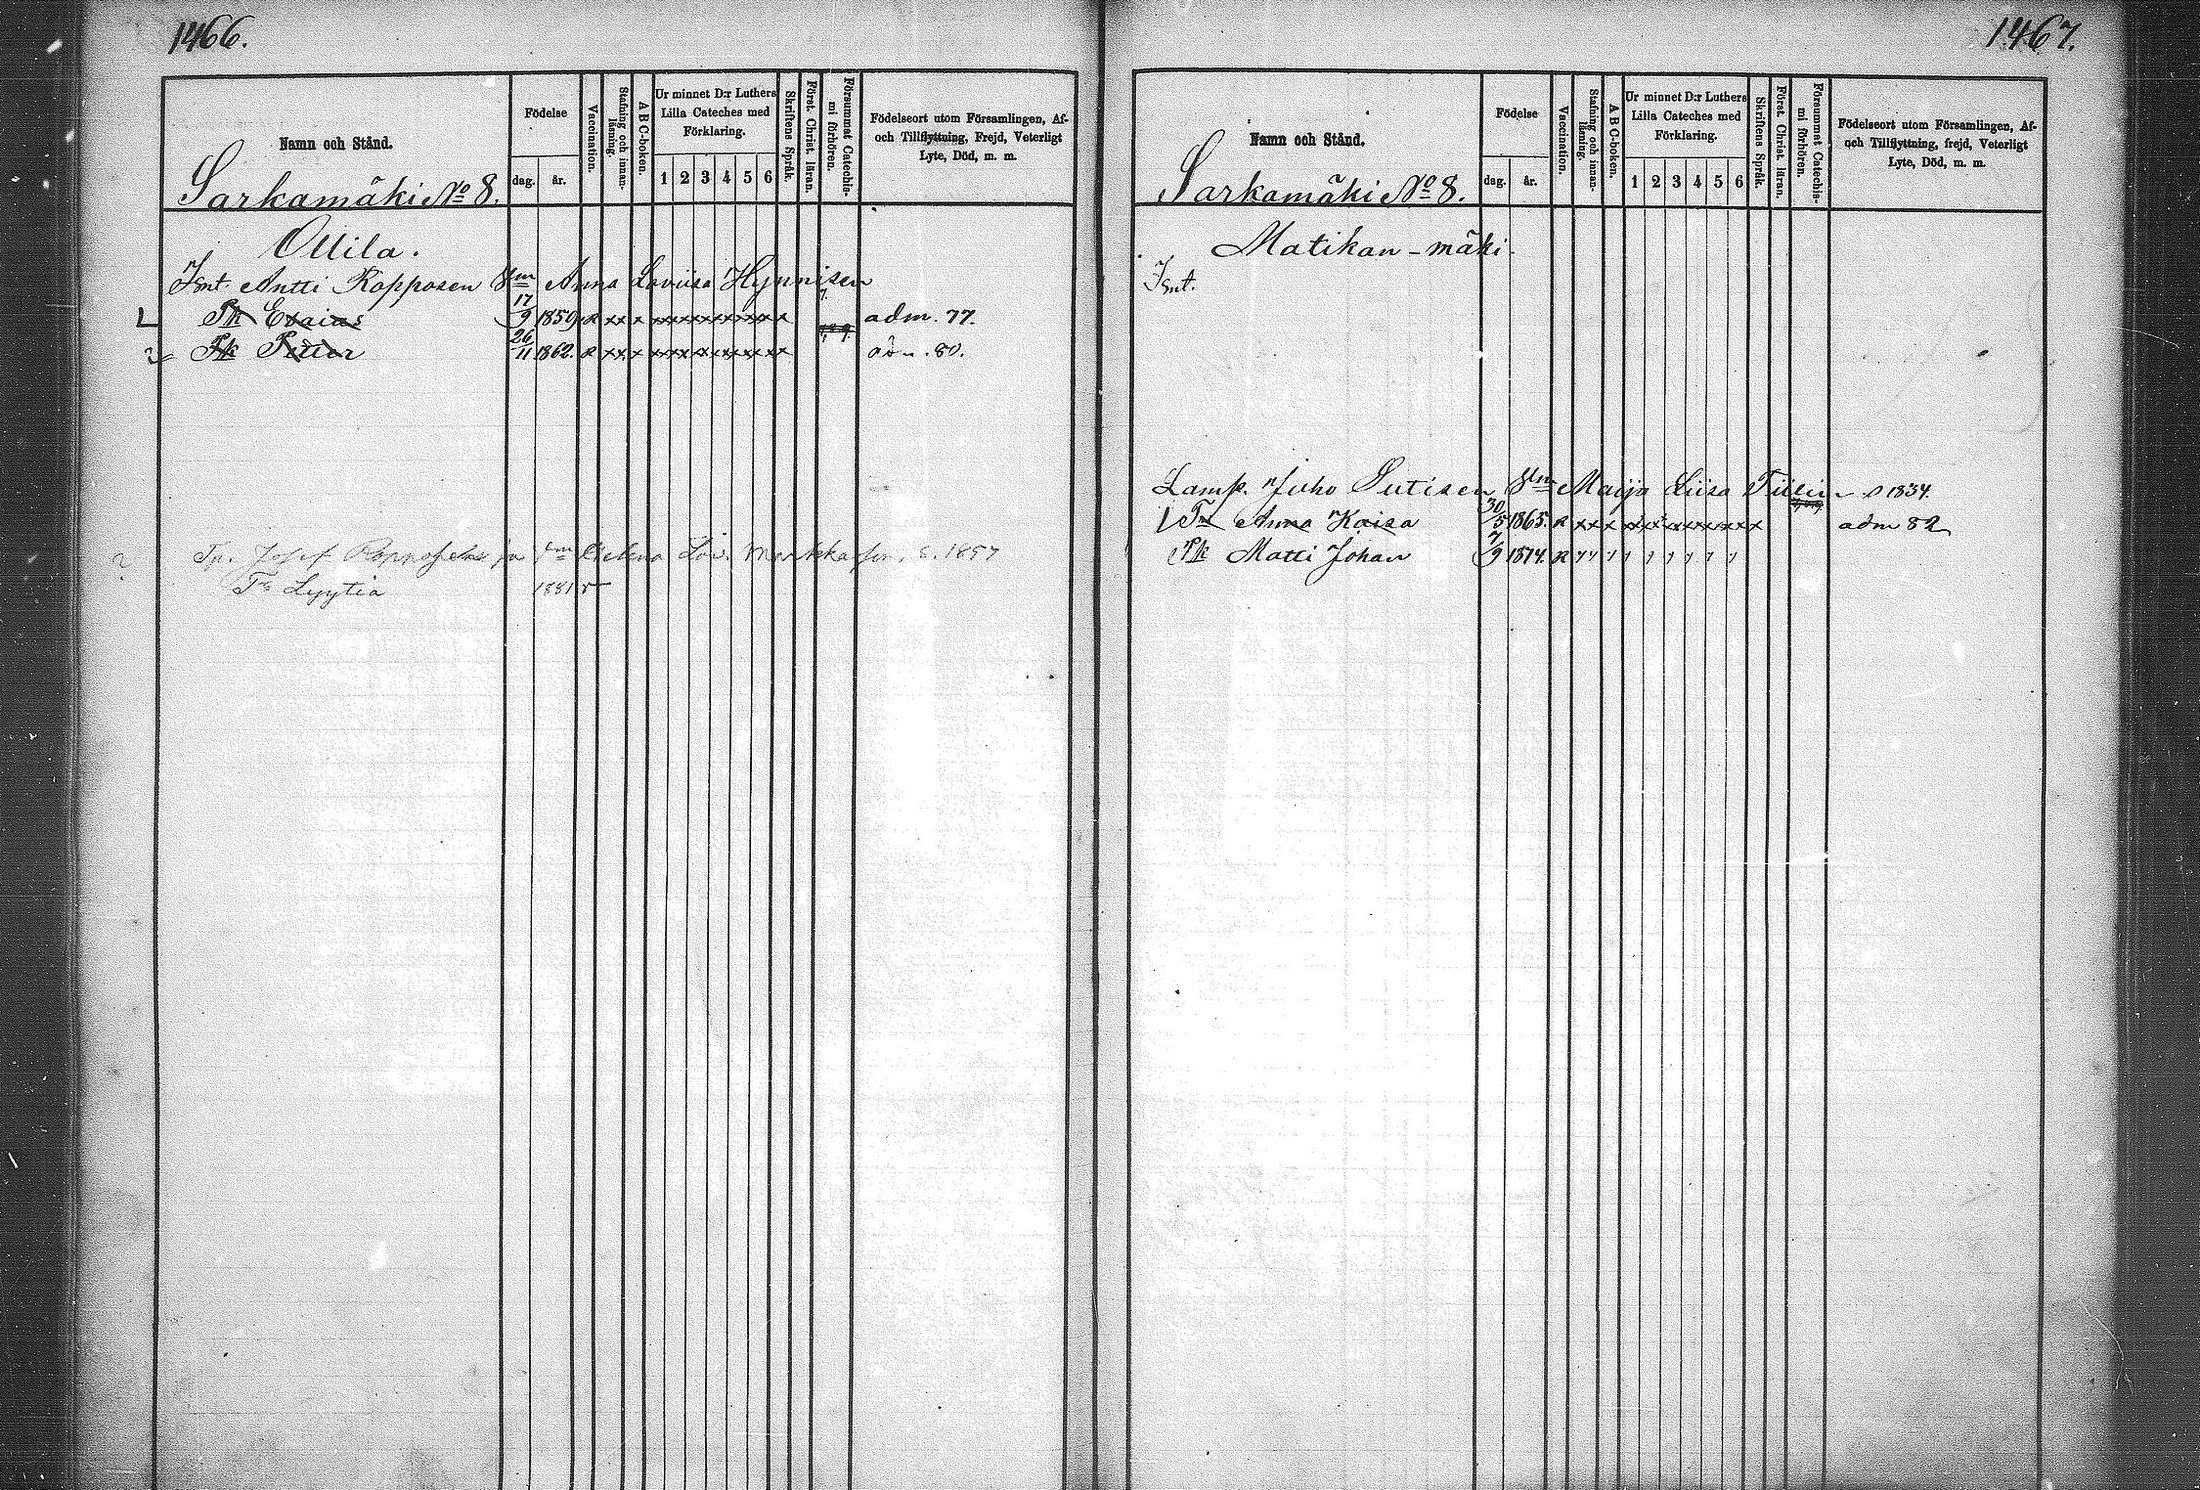 1466.
Namn och Stånd.
Födelse
dag.
år.
Vaccination.
Stafning och innan-
läsning.
A B C-boken.
Ur minnet D:r Luthers
Lilla Cateches med
Förklaring.
1 2 3 4 5 6
Skriftens Språk.
Först. Christ. läran.
Försummat Catechis-
mi förhören.
Födelseort utom Församlingen, Af-
och Tillflyttning, Frejd, Veterligt
Lyte, Död, m. m.
Sarkamäki No 8.
Ollila.
Int. Antti Ropposen Vm Anna Loviisa Hynnisen
Pk Esaias 17/9 1859 R xx x xxxxxxxxxx adm. 77.
2 Pk Petter 26/11 1862. R xx x xxxxxxxxxx adm. 80.
? Josef Ropposen ja Vm Helena Lov. s. 1857
Tr Lyytia 1881
1467.
Namn och Stånd.
Födelse
dag.
år.
Vaccination.
Stafning och innan-
läsning.
A B C-boken.
Ur minnet D:r Luthers
Lilla Cateches med
Förklaring.
1 2 3 4 5 6
Skriftens Språk.
Först. Christ. läran.
Försummat Catechis-
mi förhören.
Födelseort utom Församlingen, Af-
och Tillflyttning, frejd, Veterligt
Lyte, Död, m. m.
Sarkamäki No 8.
Matikan-mäki
Int.
Lamp. Juho Putisen Vm Maija Liisa s 1834.
Tr Anna Kaisa 30/5 1865. R xx x xxxxxxxxx adm 82
Pk Matti Johan 7/9 1874. R